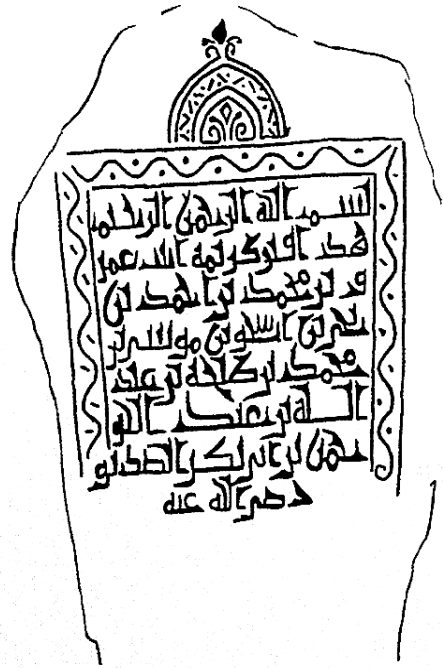 بسم الله الرحمن الرحيم
هذا قبر كريمة ابنت عمر
و بن محمد بن احمد بن
بن اسحق بن موسى بن
محمد بن طلحة بن عبد
الله بن عبد الر
حمن بن ابي بكر الصديق
رضي الله عنه